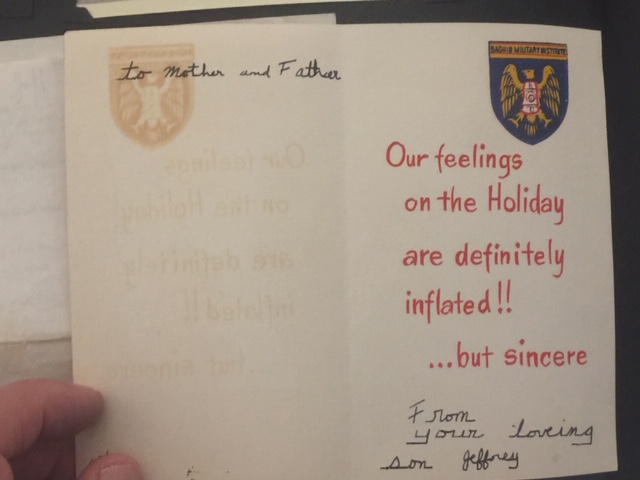 to Mother and Father
MILITARY INSTITUTE
Our feelings
on the Holiday
are definitely
inflated!!
...but sincere
From
your loveing
son Jeffrey